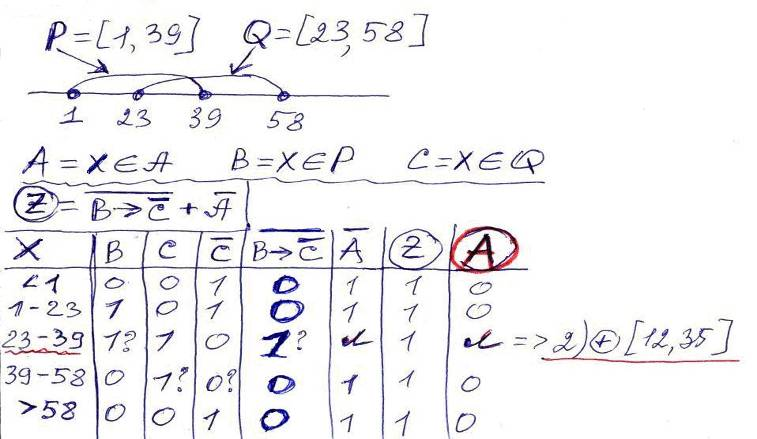 P=[1,39] Q=[23,58]
1 23 39 58
A = X∈A B=X∈P C=X∈Q
Z = \overline{B→\overline{C}} + \overline{A}
X B C \overline{C} \overline{B→\overline{C}} \overline{A} Z A
<1 0 0 1 0 1 1 0
1-23 1 0 1 0 1 1 0
23-39 1? 1 0 1? 1 => 2) + [12,35]
39-58 0 1? 0? 0 1 1 0
>58 0 0 1 0 1 1 0